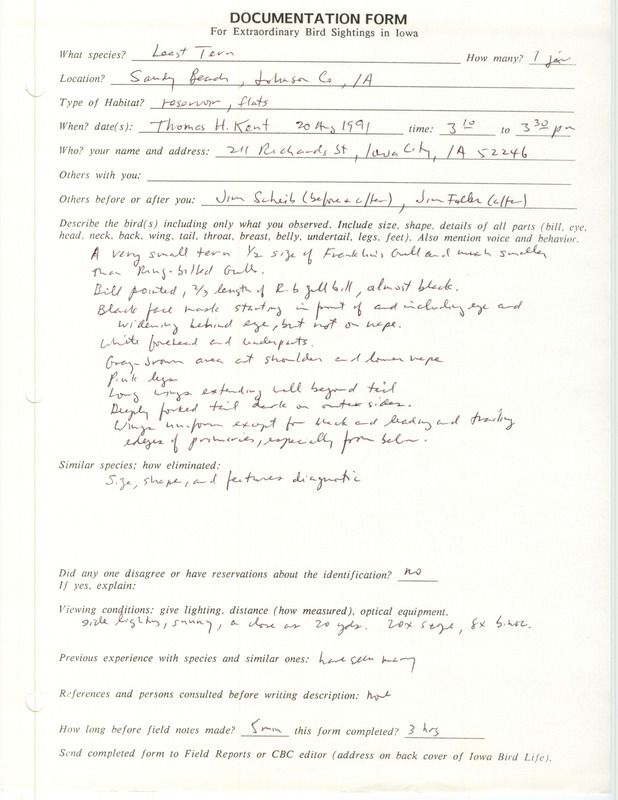 DOCUMENTATION FORM
For Extraordinary Bird Sightings in Iowa
What species? Least Tern How many? 1 juv
Location? Sandy Beach, Johnson Co, IA
Type of Habitat? reservoir, flats
When? date(s): Thomas H. Kent 20 Aug 1991 time: 3 10 to 3 30 pm
Who? your name and address: 211 Richards St, Iowa City, IA 52246
Others with you:
Others before or after you: Jim Scheib (before + after), Jim Fuller (after)
Describe the bird(s) including only what you observed. Include size, shape, details of all parts (bill, eye,
head, neck, back, wing, tail, throat, breast, belly, undertail, legs, feet). Also mention voice and behavior.
A very small tern 1/2 size of Franklin's Gull and much smaller
than Ring-billed Gull.
Bill pointed, 2/3 length of R-b gull bill, almost black.
Black face mask starting in front of and including eye and
widening behind eye, but not on nape.
White forehead and underparts.
Gray-brown area at shoulder and lower nape
Pink legs
Long wings extending well beyond tail
Deeply forked tail dark on outer sides.
Wings uniform except for black and leading and trailing
edges of primaries, especially from below.
Similar species; how eliminated:
Size, shape, and features diagnostic
Did any one disagree or have reservations about the identification? no
If yes, explain:
Viewing conditions: give lighting, distance (how measured), optical equipment.
side lighting, sunny, a close as 20 yds. 20x scope, 8x binoc.
Previous experience with species and similar ones: have seen many
References and persons consulted before writing description: none
How long before field notes made? 5 min this form completed? 3 hrs
Send completed form to Field Reports or CBC editor (address on back cover of Iowa Bird Life).